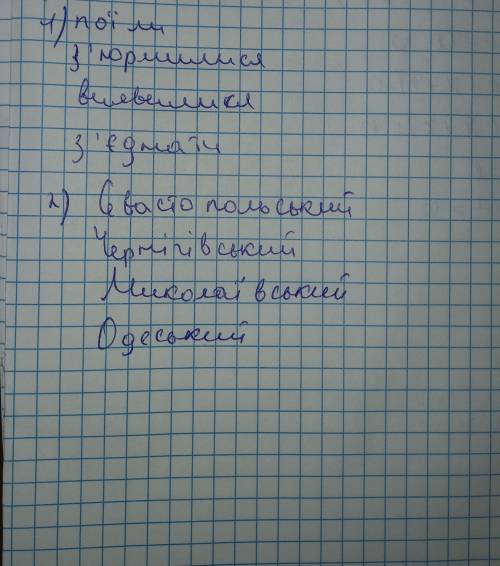 1) пої ли
З'юрмилися
виявилися
З'єднати
2) Севастопольський
Чернігівський
Миколаївський
Одеський